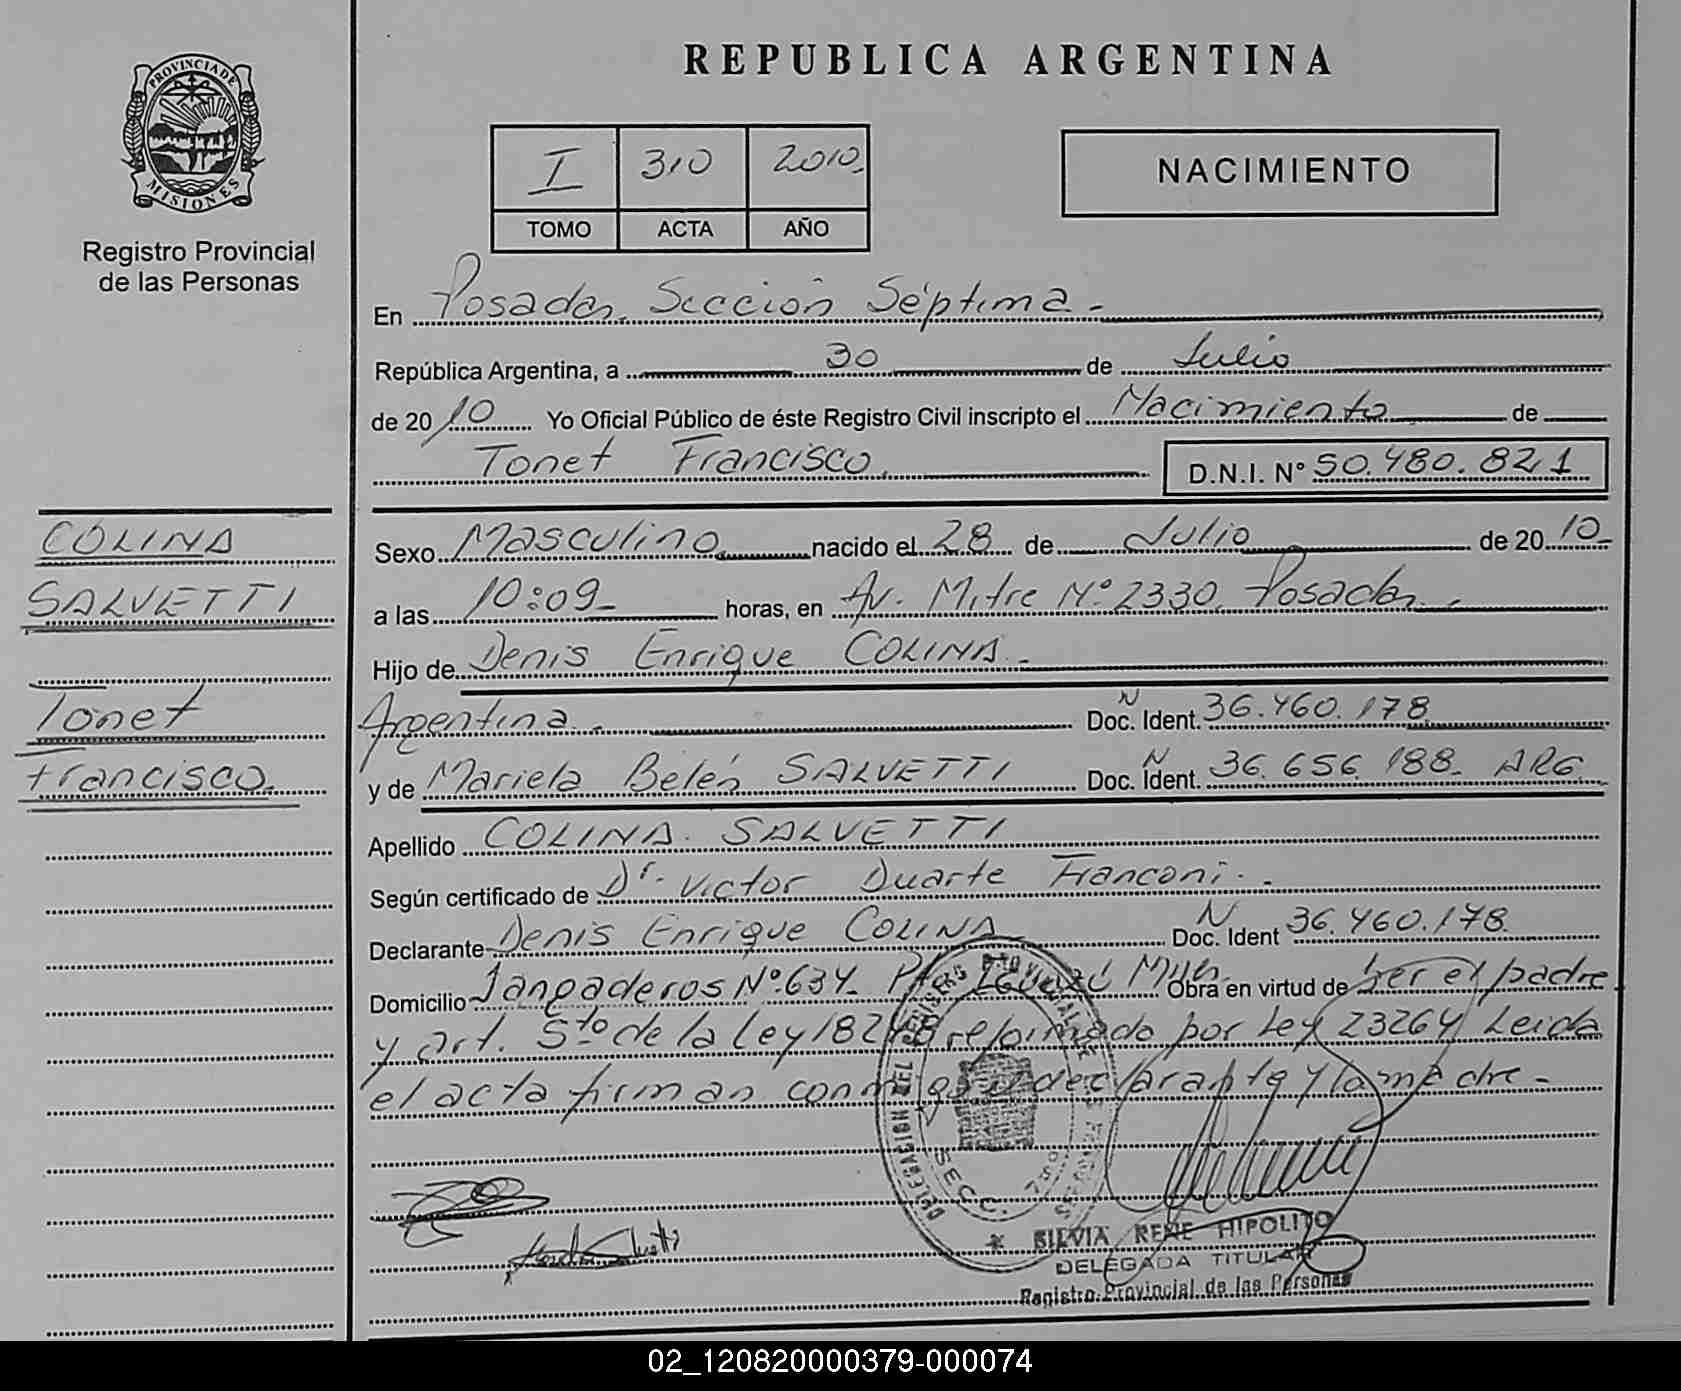 PROVINCIA DE
MISIONES
Registro Provincial
de las Personas
COLINA
SALVETTI
Tonet
Francisco.
REPUBLICA ARGENTINA
I 310 2010
TOMO ACTA AÑO
NACIMIENTO
En Posadas, Sección Séptima.-
República Argentina, a 30 de Julio
de 2010 Yo Oficial Público de éste Registro Civil inscripto el Nacimiento de
Tonet Francisco. D.N.I. Nº 50.480.821
Sexo Masculino nacido el 28 de Julio de 2010
a las 10:09 horas, en Av. Mitre Nº 2330, Posadas.
Hijo de Denis Enrique COLINA.
Argentina.- Doc. Ident. N 36.460.178
y de Mariela Belén SALVETTI Doc. Ident. N 36.656.188. ARG.
Apellido COLINA SALVETTI
Según certificado de Dr. Victor Duarte Franconi.
Declarante Denis Enrique COLINA Doc. Ident N 36.460.178
Domicilio Nº 634 Obra en virtud de ser el padre
y art. 5to de la Ley por Ley 23264 Leida
el acta firman declarante y la madre.-
SECC. 7
SILVIA RENE HIPOLITO
DELEGADA TITULAR
Registro Provincial de las Personas
02_120820000379-000074